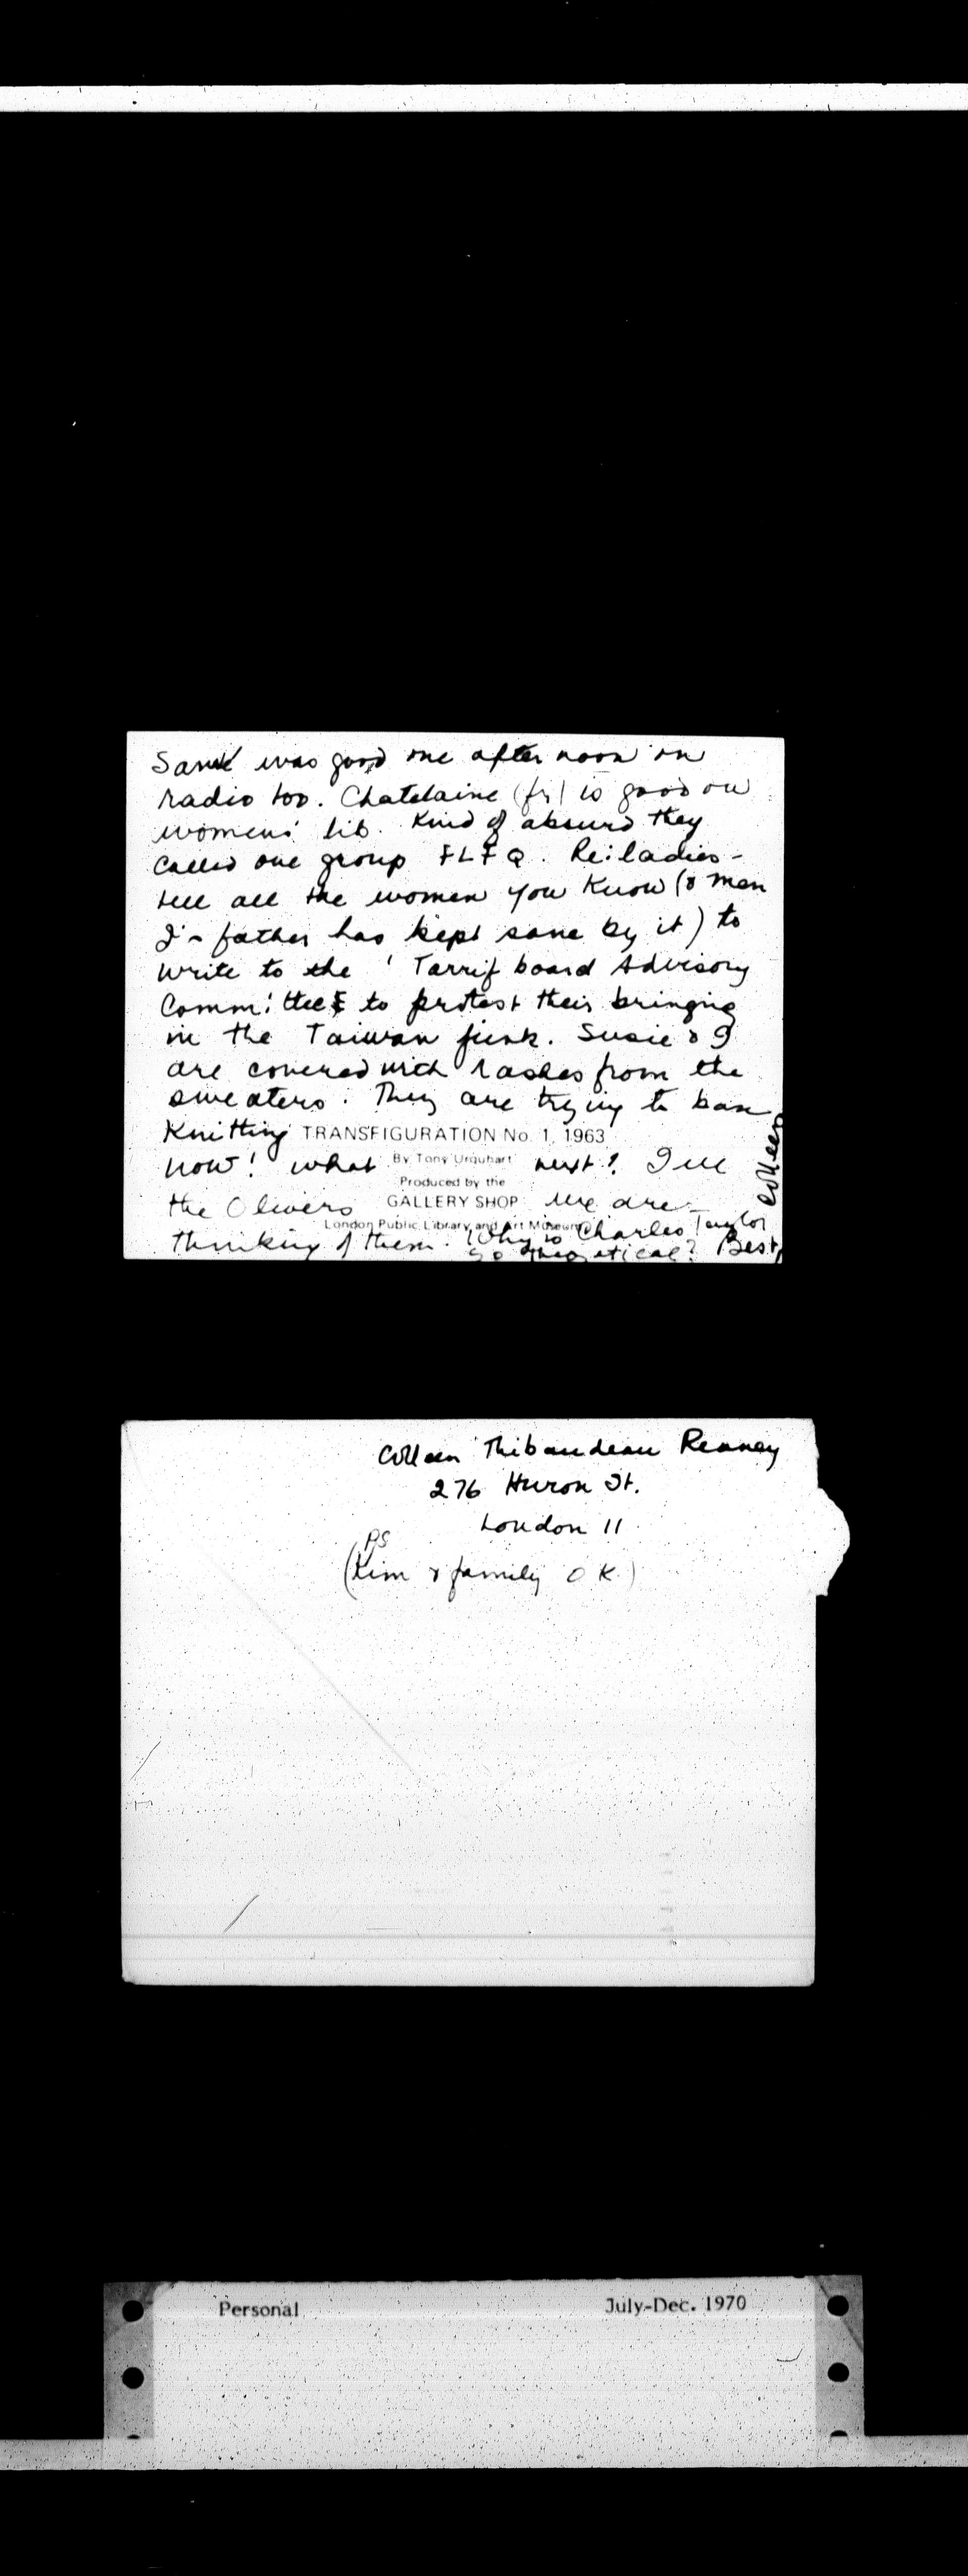 was good one afternoon on
radio too. Chatelaine (fr) is good on
womens' lib. Kind of absurd they
called one group FLFQ. Re: ladies -
tell all the women you know (& men
J's father has kept sane by it) to
write to the 'Tarrif board Advisory
Committee to protest their bringing
in the Taiwan junk. Susie & I
are covered with rashes from the
sweaters. They are trying to ban
Knitting TRANSFIGURATION No. 1, 1963
now! what By Tony Urquhart next?
Produced by the
the Olivers GALLERY SHOP We are
London Public Library and Art Museum
thinking of them. Why is Charles Taylor
so ? Best,
Colleen
Colleen Thibaudeau Reaney
276 Huron St.
London 11
PS
(Kim & family OK.)
Personal July-Dec. 1970